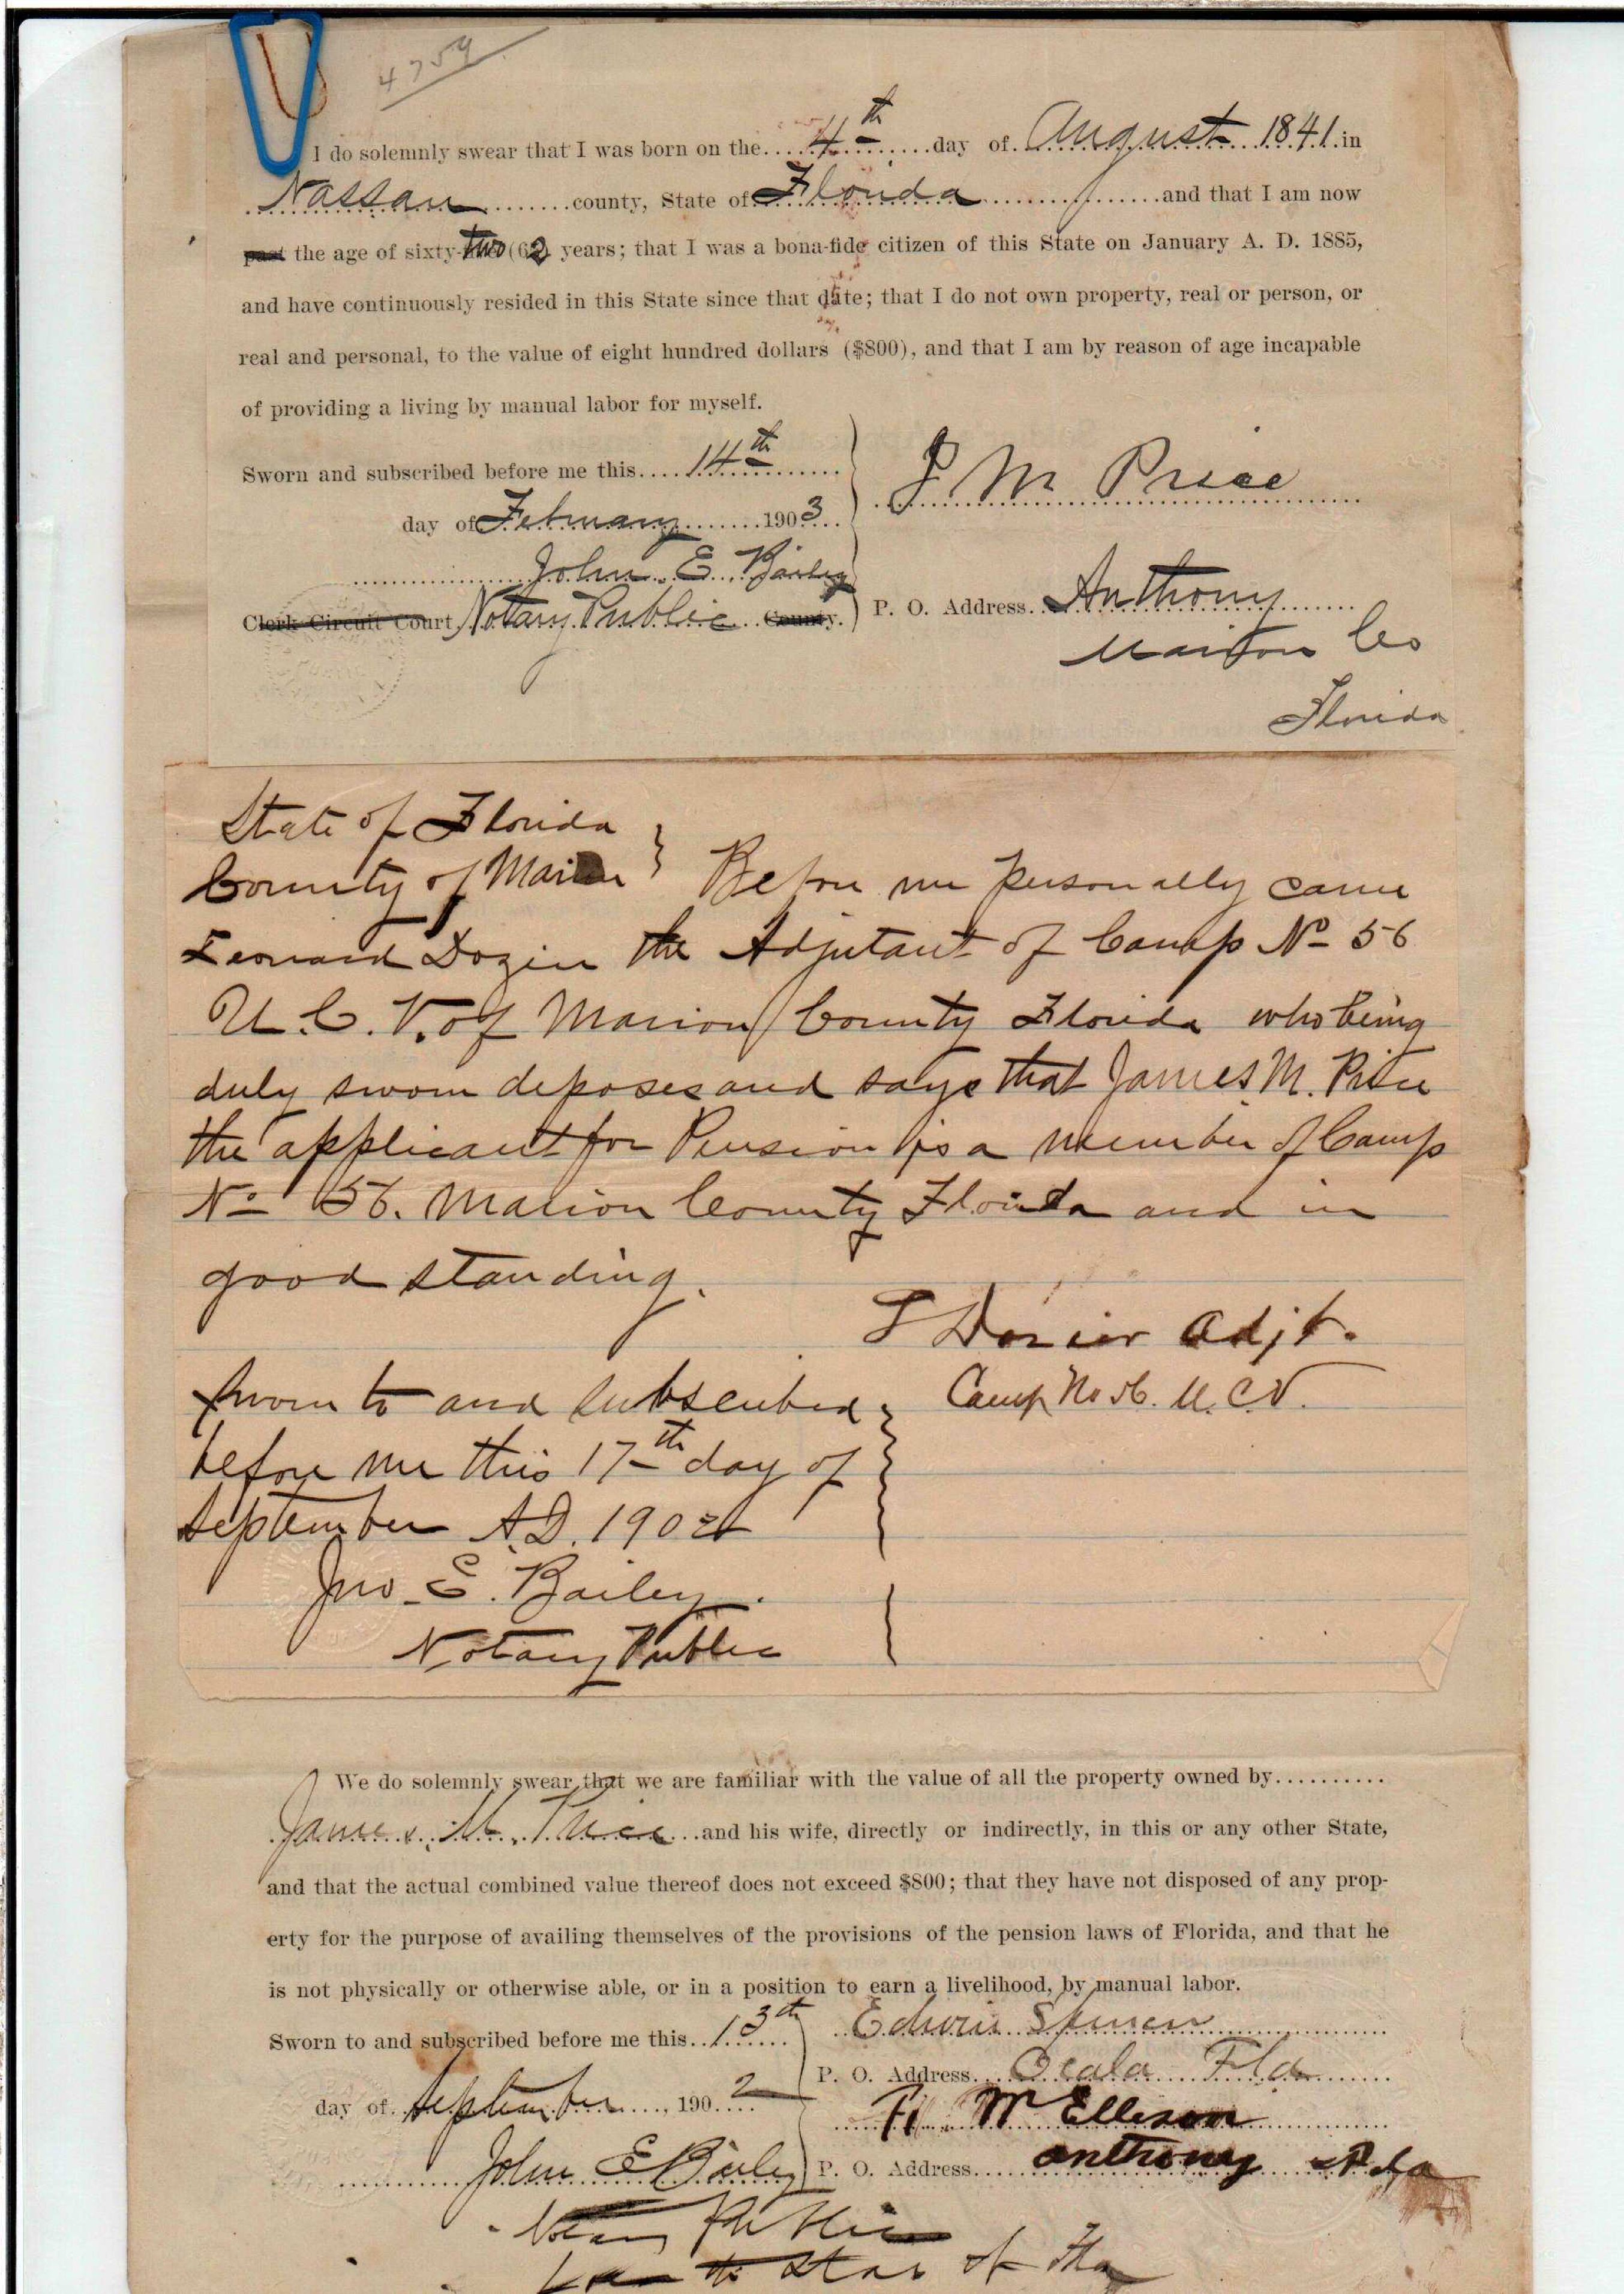 4759
I do solemnly swear that I was born on the....4th....day of August 1841 in
Nassau county, State of Florida and that I am now
past the age of sixty-two (62 years; that I was a bona-fide citizen of this State on January A. D. 1885,
and have continuously resided in this State since that date; that I do not own property, real or person, or
real and personal, to the value of eight hundred dollars ($800), and that I am by reason of age incapable
of providing a living by manual labor for myself.
Sworn and subscribed before me this....14th
J M Price
day of February 1903
John E Bailey
Clerk Circuit Court Notary Public County.
P. O. Address. Anthony
Marion Co
Florida
State of Florida
County of Marion } Before me personally came
Leonard Dozier the Adjutant of Camp No 56
U.C.V. of Marion County Florida who being
duly sworn deposes and says that James M. Price
the applicant for Pension is a member of Camp
No 56. Marion County Florida and in
good standing.
L Dozier Adjt.
Camp No 56. U.C.V.
Sworn to and subscribed
before me this 17th day of
September A.D. 1902
Jno. E. Bailey.
Notary Public
We do solemnly swear that we are familiar with the value of all the property owned by..........
James M. Price and his wife, directly or indirectly, in this or any other State,
and that the actual combined value thereof does not exceed $800; that they have not disposed of any prop-
erty for the purpose of availing themselves of the provisions of the pension laws of Florida, and that he
is not physically or otherwise able, or in a position to earn a livelihood, by manual labor.
Sworn to and subscribed before me this..13th
Edwin Spencer
P. O. Address....Ocala Fla
day of September, 1902
McEllison
John E Bailey
P. O. Address....Anthony Fla
Notary Public
State of Fla